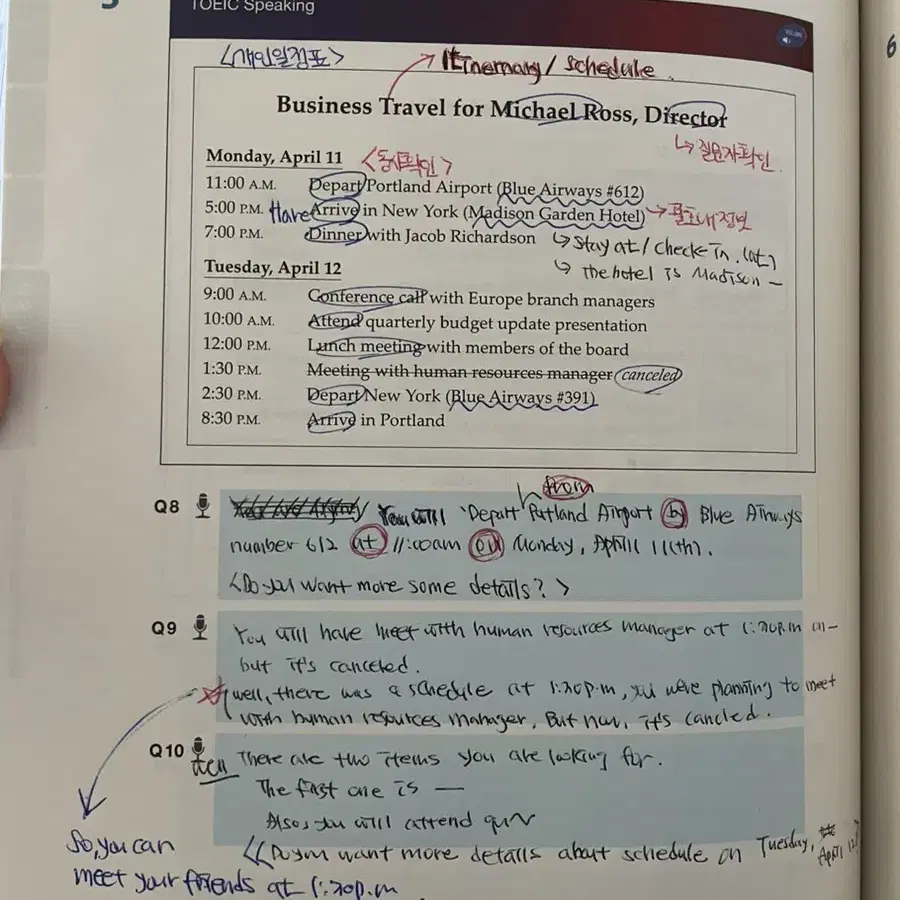 TOEIC Speaking
<개인일정표>
Itinernary/ schedule.
Business Travel for Michael Ross, Director
↳ 질문자확인
Monday, April 11 <동사확인>
11:00 A.M. Depart Portland Airport (Blue Airways #612)
5:00 P.M. Have Arrive in New York (Madison Garden Hotel) → 표내정보
7:00 P.M. Dinner with Jacob Richardson ↳ stay at/ checke in. (at)
Tuesday, April 12 ↳ the hotel is Madison —
9:00 A.M. Conference call with Europe branch managers
10:00 A.M. Attend quarterly budget update presentation
12:00 P.M. Lunch meeting with members of the board
1:30 P.M. Meeting with human resources manager canceled
2:30 P.M. Depart New York (Blue Airways #391)
8:30 P.M. Arrive in Portland
from
Q8 You will Depart Portland Airport by Blue Airways
number 612 at 11:00am on Monday, April 11(th).
<Do you want more some details? >
Q9 You will have meet with human resources manager at 1:30p.m
but it's canceled.
well, there was a schedule at 1:30p.m, you were planning to meet
with human resources manager, But now, it's cancled.
Q10 There are two items you are looking for.
The first one is —
Also, you will attend
So, you can
meet your friends at 1:30p.m.
<<Do you want more details about schedule on Tuesday, April 12
6